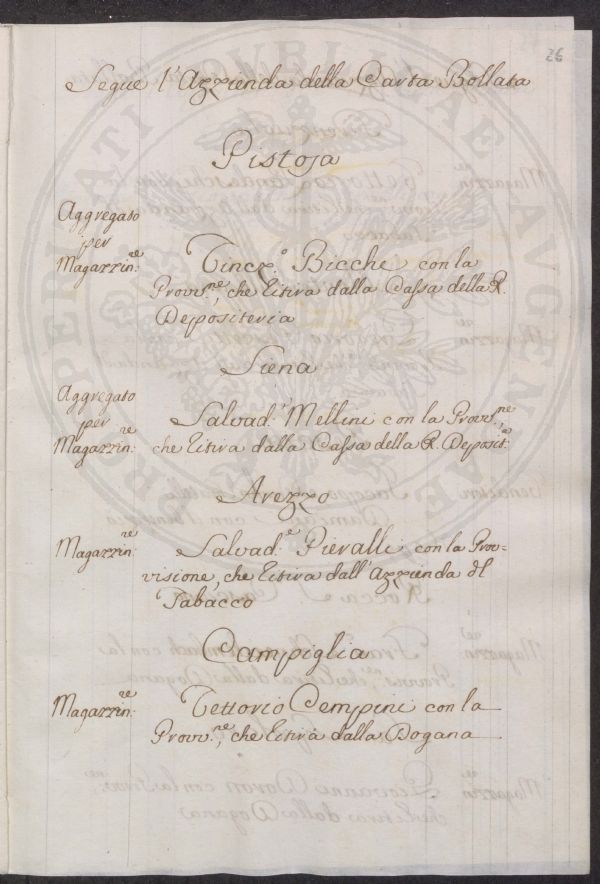 26
Segue l'Azzienda della Carta Bollata
Pistoja
Aggregato
per
Magazzin:re
Vincz.o Bicche con la
Provis.ne, che titira dalla Cassa della R.
Depositeria
Siena
Aggregato
per
Magazzin:re
Salvad.e Mellini con la Provv.ne,
che titira dalla Cassa della R. Deposit:a
Arezzo
Magazzin:re
Salvad.e Pieralli con la Prov=
visione, che titira dall'Azzienda dl
Tabacco
Campiglia
Magazzin:re
Cempini con la
Provv.ne, che titira dalla Dogana
PROSPERITATI PUBLICAE AUGENDAE